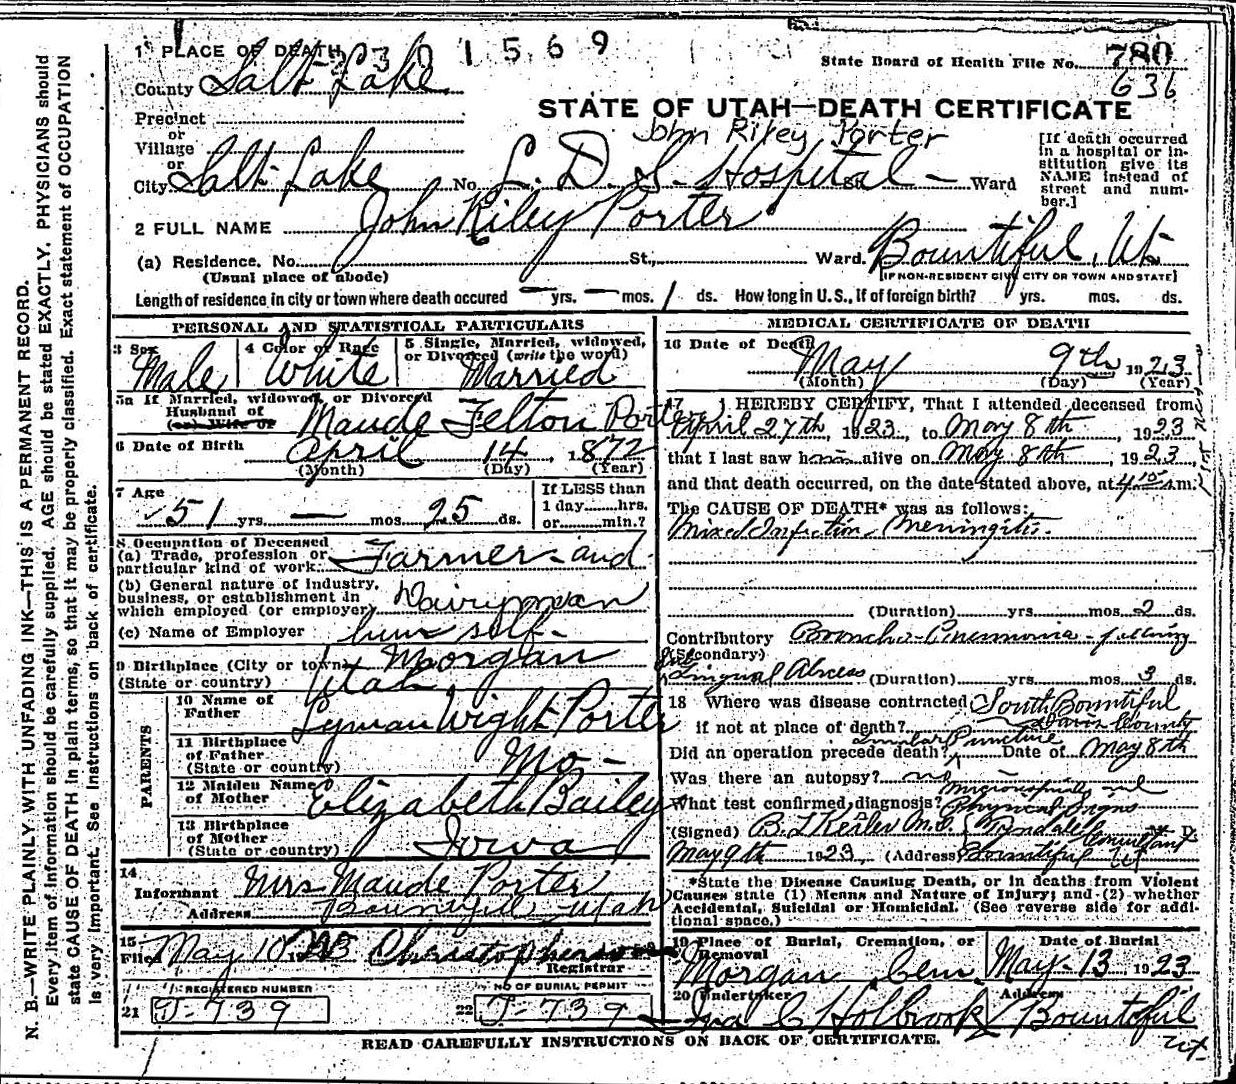 1 PLACE OF DEATH 2301569
State Board of Health File No. 780
636
County Salt Lake
STATE OF UTAH—DEATH CERTIFICATE
Precinct
or
Village
or
John Riley Porter
[If death occurred in a hospital or institution give its NAME instead of street and number.]
City Salt Lake No. L. D. S. Hospital St. — Ward
2 FULL NAME John Riley Porter
(a) Residence. No. St., Ward. Bountiful, Ut
(Usual place of abode) [IF NON-RESIDENT GIVE CITY OR TOWN AND STATE]
Length of residence in city or town where death occured — yrs. — mos. 1 ds. How long in U.S., if of foreign birth? yrs. mos. ds.
PERSONAL AND STATISTICAL PARTICULARS
3 Sex Male
4 Color or Race White
5 Single, Married, widowed, or Divorced (write the word) Married
5a If Married, widowed, or Divorced
Husband of
(or) Wife of Maude Felton Porter
6 Date of Birth April 14, 1872
(Month) (Day) (Year)
7 Age 51 yrs. — mos. 25 ds.
If LESS than
1 day hrs.
or min.?
8 Occupation of Deceased
(a) Trade, profession or particular kind of work Farmer and
(b) General nature of industry, business, or establishment in which employed (or employer) Dairyman
(c) Name of Employer him self
9 Birthplace (City or town) Morgan
(State or country) Utah
PARENTS
10 Name of Father Lyman Wight Porter
11 Birthplace of Father (State or country) Mo -
12 Maiden Name of Mother Elizabeth Bailey
13 Birthplace of Mother (State or country) Iowa
14
Informant Mrs Maude Porter
Address Bountiful Utah
15
Filed May 10 1923 Christopherson
Registrar
REGISTERED NUMBER
21 J-739
NO OF BURIAL PERMIT
22 J-739
MEDICAL CERTIFICATE OF DEATH
16 Date of Death May 9th 1923
(Month) (Day) (Year)
17 I HEREBY CERTIFY, That I attended deceased from
April 27th, 1923, to May 8th, 1923
that I last saw him alive on May 8th, 1923
and that death occurred, on the date stated above, at 4 15 a m.
The CAUSE OF DEATH* was as follows:
Mixed Infection Meningitis.
(Duration) yrs. mos. 2 ds.
Contributory Broncho-Pneumonia - following
(Secondary)
Sub Lingual Abscess (Duration) yrs. mos. 3 ds.
18 Where was disease contracted South Bountiful
if not at place of death? Davis County
Lumbar Puncture
Did an operation precede death? Date of May 8th
Was there an autopsy? no
What test confirmed diagnosis? Physical Signs
(Signed) M. D.
May 9th 1923 (Address) Bountiful Ut
*State the Disease Causing Death, or in deaths from Violent Causes state (1) Means and Nature of Injury; and (2) whether Accidental, Suicidal or Homicidal. (See reverse side for additional space.)
19 Place of Burial, Cremation, or Removal Morgan Cem.
Date of Burial May 13 1923
20 Undertaker Ira C Holbrook
Address Bountiful Ut.
READ CAREFULLY INSTRUCTIONS ON BACK OF CERTIFICATE.
N. B.—WRITE PLAINLY WITH UNFADING INK—THIS IS A PERMANENT RECORD.
Every item of information should be carefully supplied. AGE should be stated EXACTLY. PHYSICIANS should
state CAUSE OF DEATH in plain terms, so that it may be properly classified. Exact statement of OCCUPATION
is very important. See instructions on back of certificate.